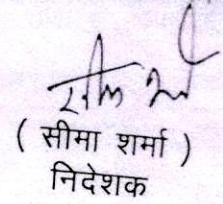 ( सीमा शर्मा )
निदेशक